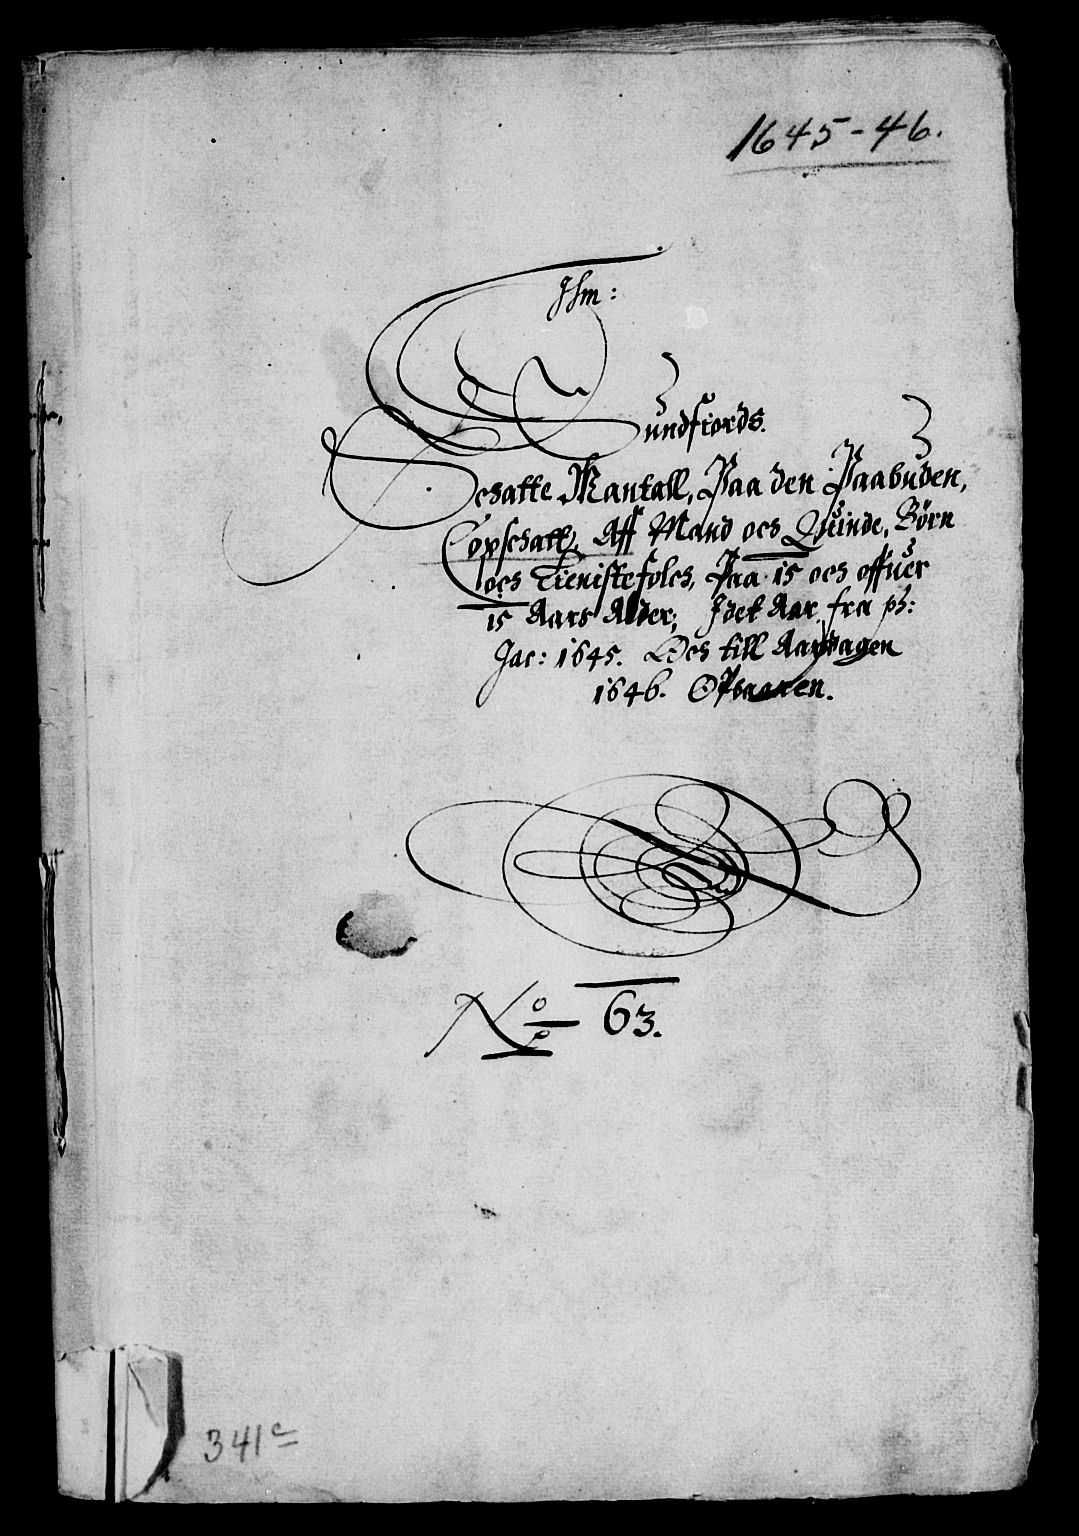 1645-46.
Jhm:
Sundfiords.
Schatte Mantall, Paa den Paabuden,
Copschatt, Aff Mand och Quinde, Børn
och Tienistefolch, Paa 15 och offuer
15 Aars Alder; Idet Aar fra ph:
Jac: 1645. Och till Aarsdagen
1646. Opbaaren.
No 63.
341c